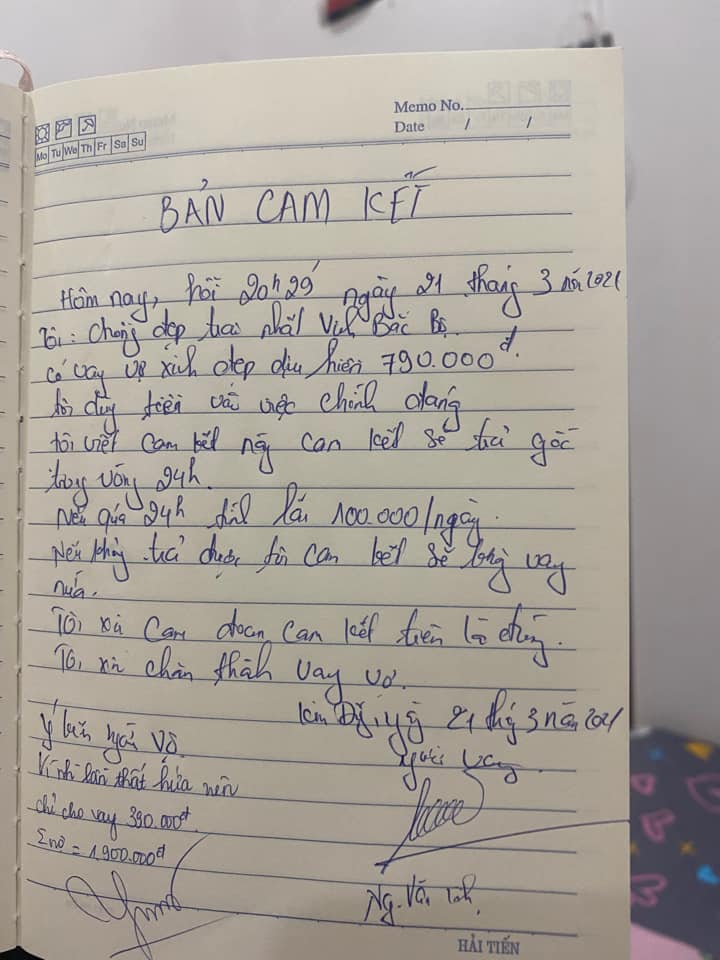 Memo No.
Date / /
Mo Tu We Th Fr Sa Su
BẢN CAM KẾT
Hôm nay, hồi 20h29' ngày 21 tháng 3 năm 2021
Tôi: Chồng đẹp trai nhất Vịnh Bắc Bộ.
có vay vợ xinh đẹp dịu hiền 790.000đ.
tôi dùng tiền vào việc chính đáng
tôi viết cam kết này cam kết sẽ trả gốc
trong vòng 24h.
Nếu quá 24h tính lãi 100.000/ngày.
Nếu không trả được tôi cam kết sẽ không vay
nữa.
Tôi xin cam đoan cam kết trên là đúng.
Tôi xin chân thành vay vợ.
Kim Động, ngày 21 tháng 3 năm 2021
Ý kiến người vợ.
Người vay
Vì nhiều lần thất hứa nên
chỉ cho vay 390.000đ.
Σnợ = 1.900.000đ
Ng. Văn
HẢI TIẾN